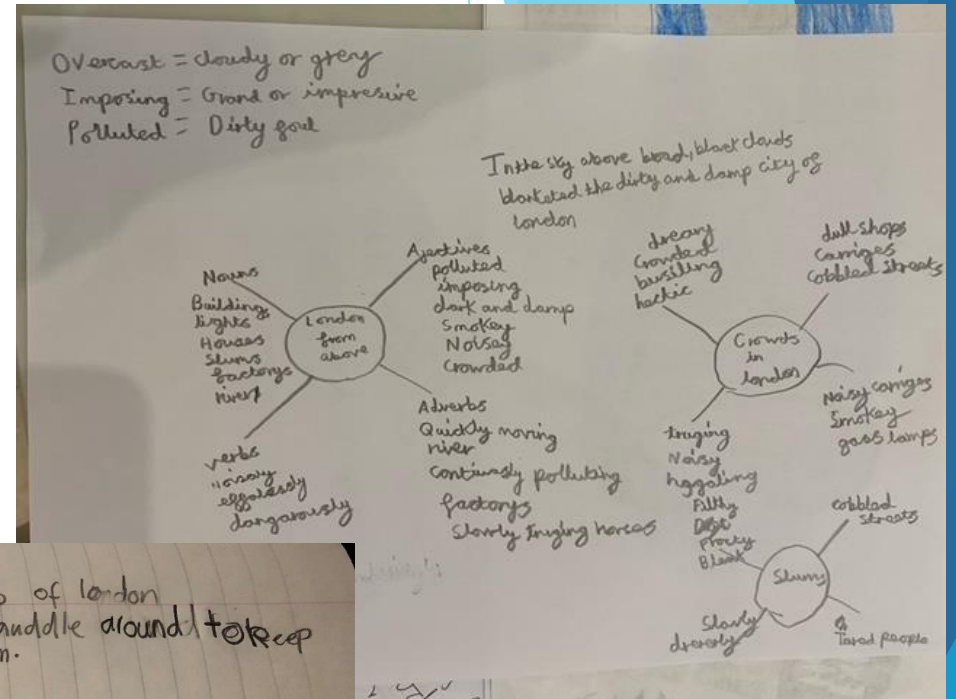 Overcast = cloudy or grey
Imposing = Grand or impresive
Polluted = Dirty foul
In the sky above broad, black clouds
blanketed the dirty and damp city of
london
Nouns
Buildings
lights
Houses
Slums
factorys
river
London
from
above
Ajectives
polluted
imposing
dark and damp
Smokey
Noisey
Crowded
verbs
effotlessly
dangarously
Adverbs
Quickly moving
river
continusly polluting
factorys
Slowly truging horses
dreary
Crowded
busiling
hectic
dull shops
Carriges
Cobbled Streets
Crowds
in
london
Noisy carriges
Smokey
gass lamps
truging
Noisy
hggaling
Filthy
Bleak
cobbled
streets
Slums
Slowly
people
of london
huddle around to keep